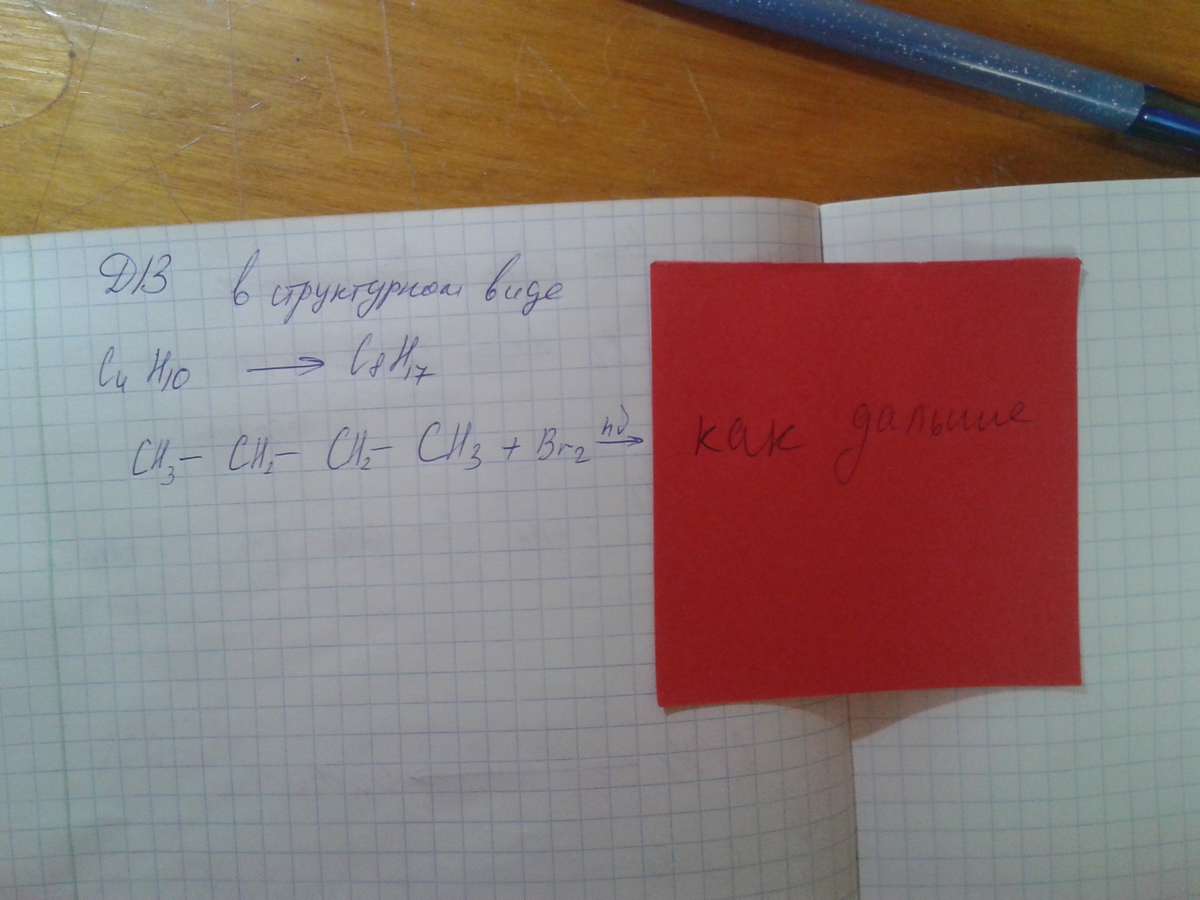 Д/З в структурном виде
C₄H₁₀ → C₈H₁₇
CH₃– CH₂– CH₂– CH₃ + Br₂ hυ→
как дальше